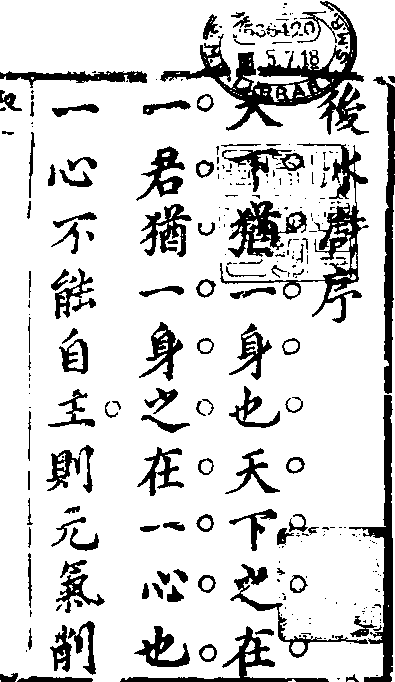 536420
5.7.18
後水滸序
天下猶一身也天下之在
一君猶一身之在一心也
一心不能自主則元氣削